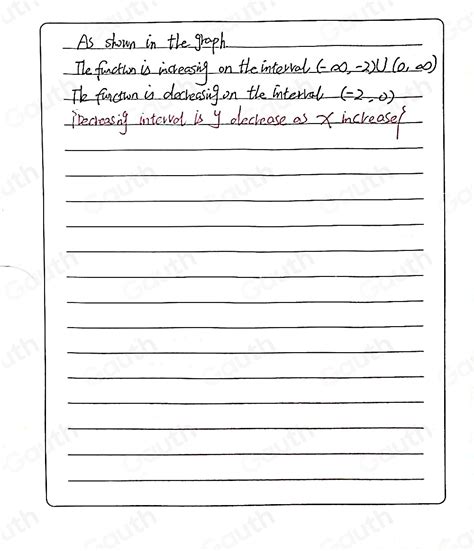 As shown in the graph
The function is increasing on the interval (-∞, -2)U(0, ∞)
The function is decreasing on the interval (-2, 0)
{Decreasing interval is y decrease as x increase}